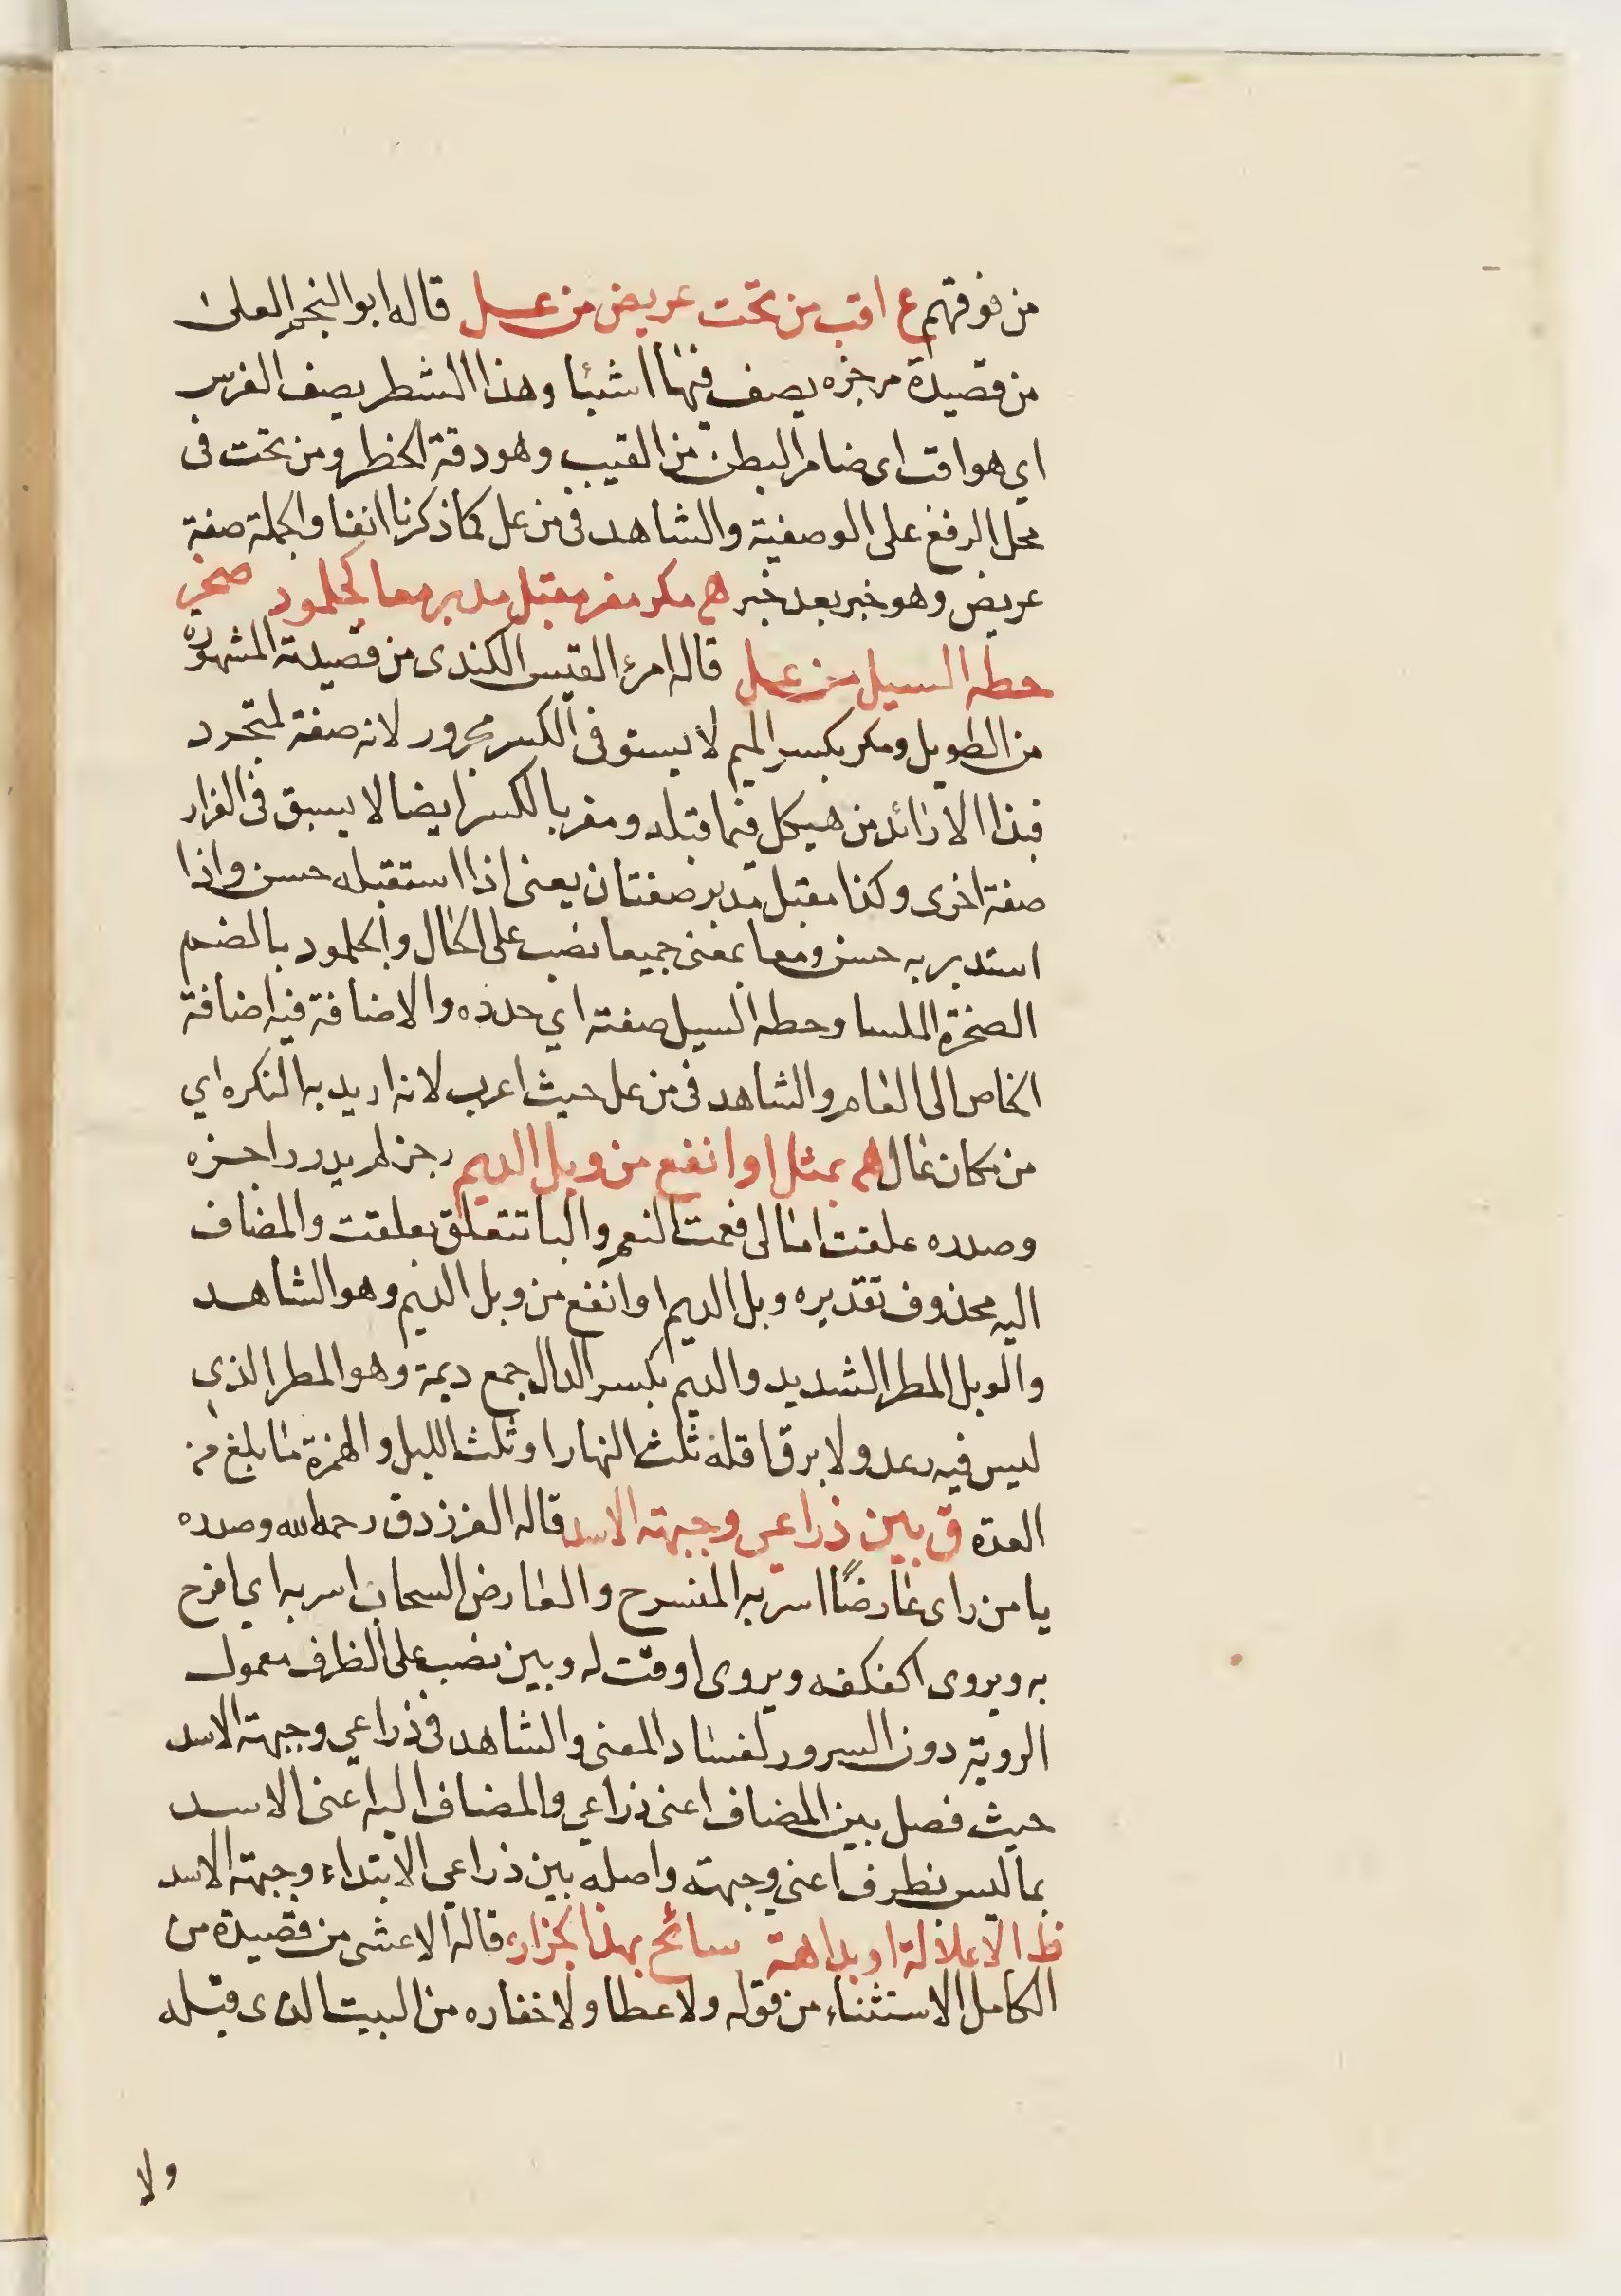 من فوقهم ع اقب من تحت عريض من عـــل قاله ابو النجم العلى
من قصيدة مرجزه يصف فيها اشيئا وهذا الشطر يصف الفرس
اي هو اقب اى ضامر البطن من القبب وهو دقة الخطر ومن تحت فى
محل الرفع على الوصفية والشاهد فى من عل كما ذكرنا انفا والجملة صفة
عريض وهو خبر بعد خبر هم مكر مفر مقبل مدبر معا كجلمود صخر
حطه السيل من عـل قاله امرء القيس الكندى من قصيدته المشهورة
من الطويل ومكر بكسر الميم لا يستوفى الكسر مجرور لانه صفة لمتجرد
فيذا الا زائد من هيكل فيما قبله ومفر بالكسر ايضا لا يسبق فى الفرار
صفة اخرى وكذا مقبل مدبر صفتان يعنى اذا استقبله حسن واذا
استدبر به حسن ومعا بمعنى جميعا نصب على الحال والجلمود بالضم
الصخرة الملسا وحطه السيل صفته اي حدده والاضافة فيه اضافة
الخاص الى العام والشاهد فى من عل حيث اعرب لانه اريد به النكره اي
من مكان عال هم بمثل او انفع من وبل الديم رجز لم يدر راجزه
وصدره علقت امالى فعمت النعم والبا تتعلق بعلقت والمضاف
اليه محذوف تقديره وبل الديم او انفع من وبل الديم وهو الشاهد
والوبل المطر الشديد والديم بكسر الدال جمع ديمة وهو المطر الذي
ليس فيه رعد ولا برق اقله ثلث النهار او ثلث الليل والهمزة ما بلغ من
العدة ق بين ذراعي وجبهة الاسد قاله الفرزدق رحمه الله وصدره
يا من راى عارضًا اسر به المنسرح والعارض السحاب اسر به اي افرح
به ويروى اكفكفه ويروى ارقت له وبين نصب على الظرف معمول
الروية دون السرور لفساد المعنى والشاهد فى ذراعي وجبهة الاسد
حيث فصل بين المضاف اعنى ذراعي والمضاف اليه اعنى الاسد
بما ليس بظرف اعني وجبهة واصله بين ذراعي الابتداء وجبهة الاسد
ظ الا علالة او بداهة سائح بهذا لجزاره قاله الاعشى من قصيدة من
الكامل الاستثناء من قوله ولا عطا ولا خفاره من البيت الذى قبله
ولا